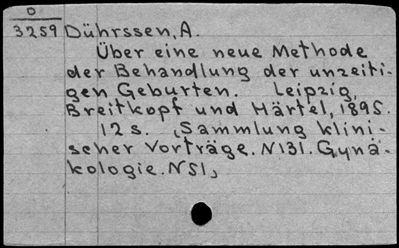 O
3259 Dührssen, A.
Über eine neue Methode
der Behandlung der unzeiti-
gen Geburten. Leipzig,
Breitkopf und Härtel, 1895.
12 s. (Sammlung klini-
scher Vorträge. N131. Gynä-
kologie. N51)